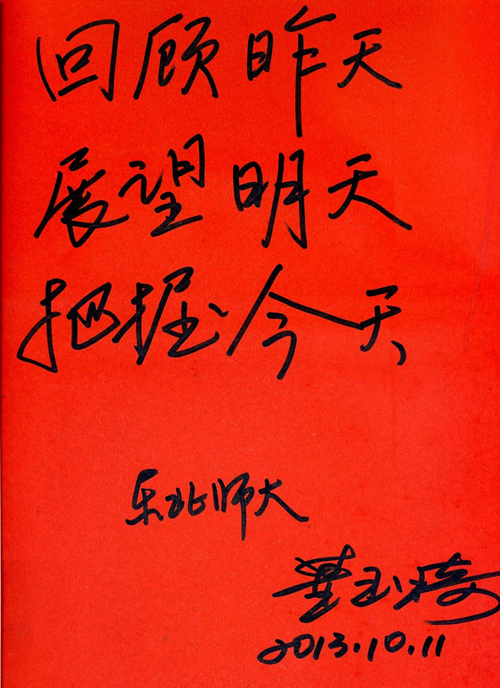 回顾昨天
展望明天
把握今天
东北师大
董玉琦
2013.10.11